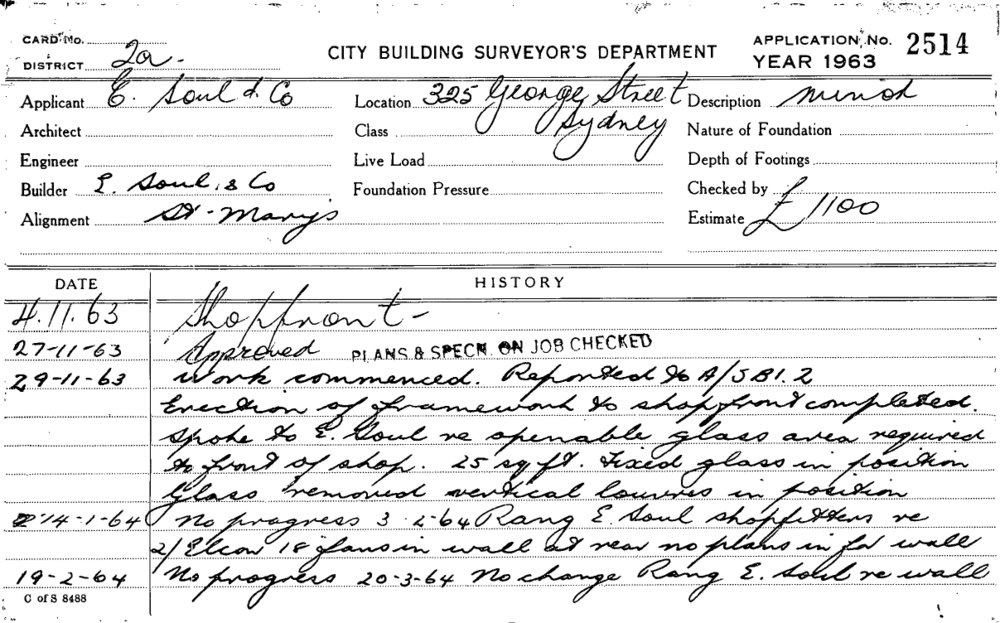 CARD No.
DISTRICT 2a.
CITY BUILDING SURVEYOR'S DEPARTMENT
APPLICATION No. 2514
YEAR 1963
Applicant E. Soul & Co
Location 325 George Street
Sydney
Description minor
Architect
Class
Nature of Foundation
Engineer
Live Load
Depth of Footings
Builder E. Soul & Co
Foundation Pressure
Checked by
Alignment St. Marys
Estimate £1100
DATE
HISTORY
4.11.63 Shopfront -
27-11-63 Approved PLANS & SPECN. ON JOB CHECKED
29-11-63 Work commenced. Reported to A/SBI. 2
Erection of framework to shopfront completed.
Spoke to E. Soul re openable glass area required
to front of shop. 25 sq ft. Fixed glass in position
Glass removed vertical louvres in position
14-1-64 No progress 3-2-64 Rang E. Soul shopfitters re
2/ 18" fans in wall at rear no plans in for wall
19-2-64 No progress 20-3-64 No change Rang E. Soul re wall
C of S 8488